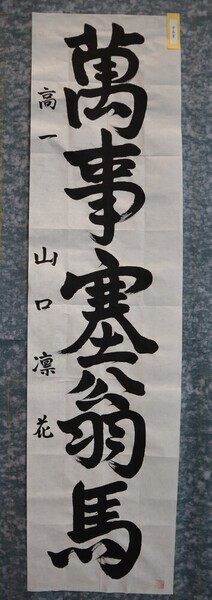 萬事塞翁馬
高一 山口凛花